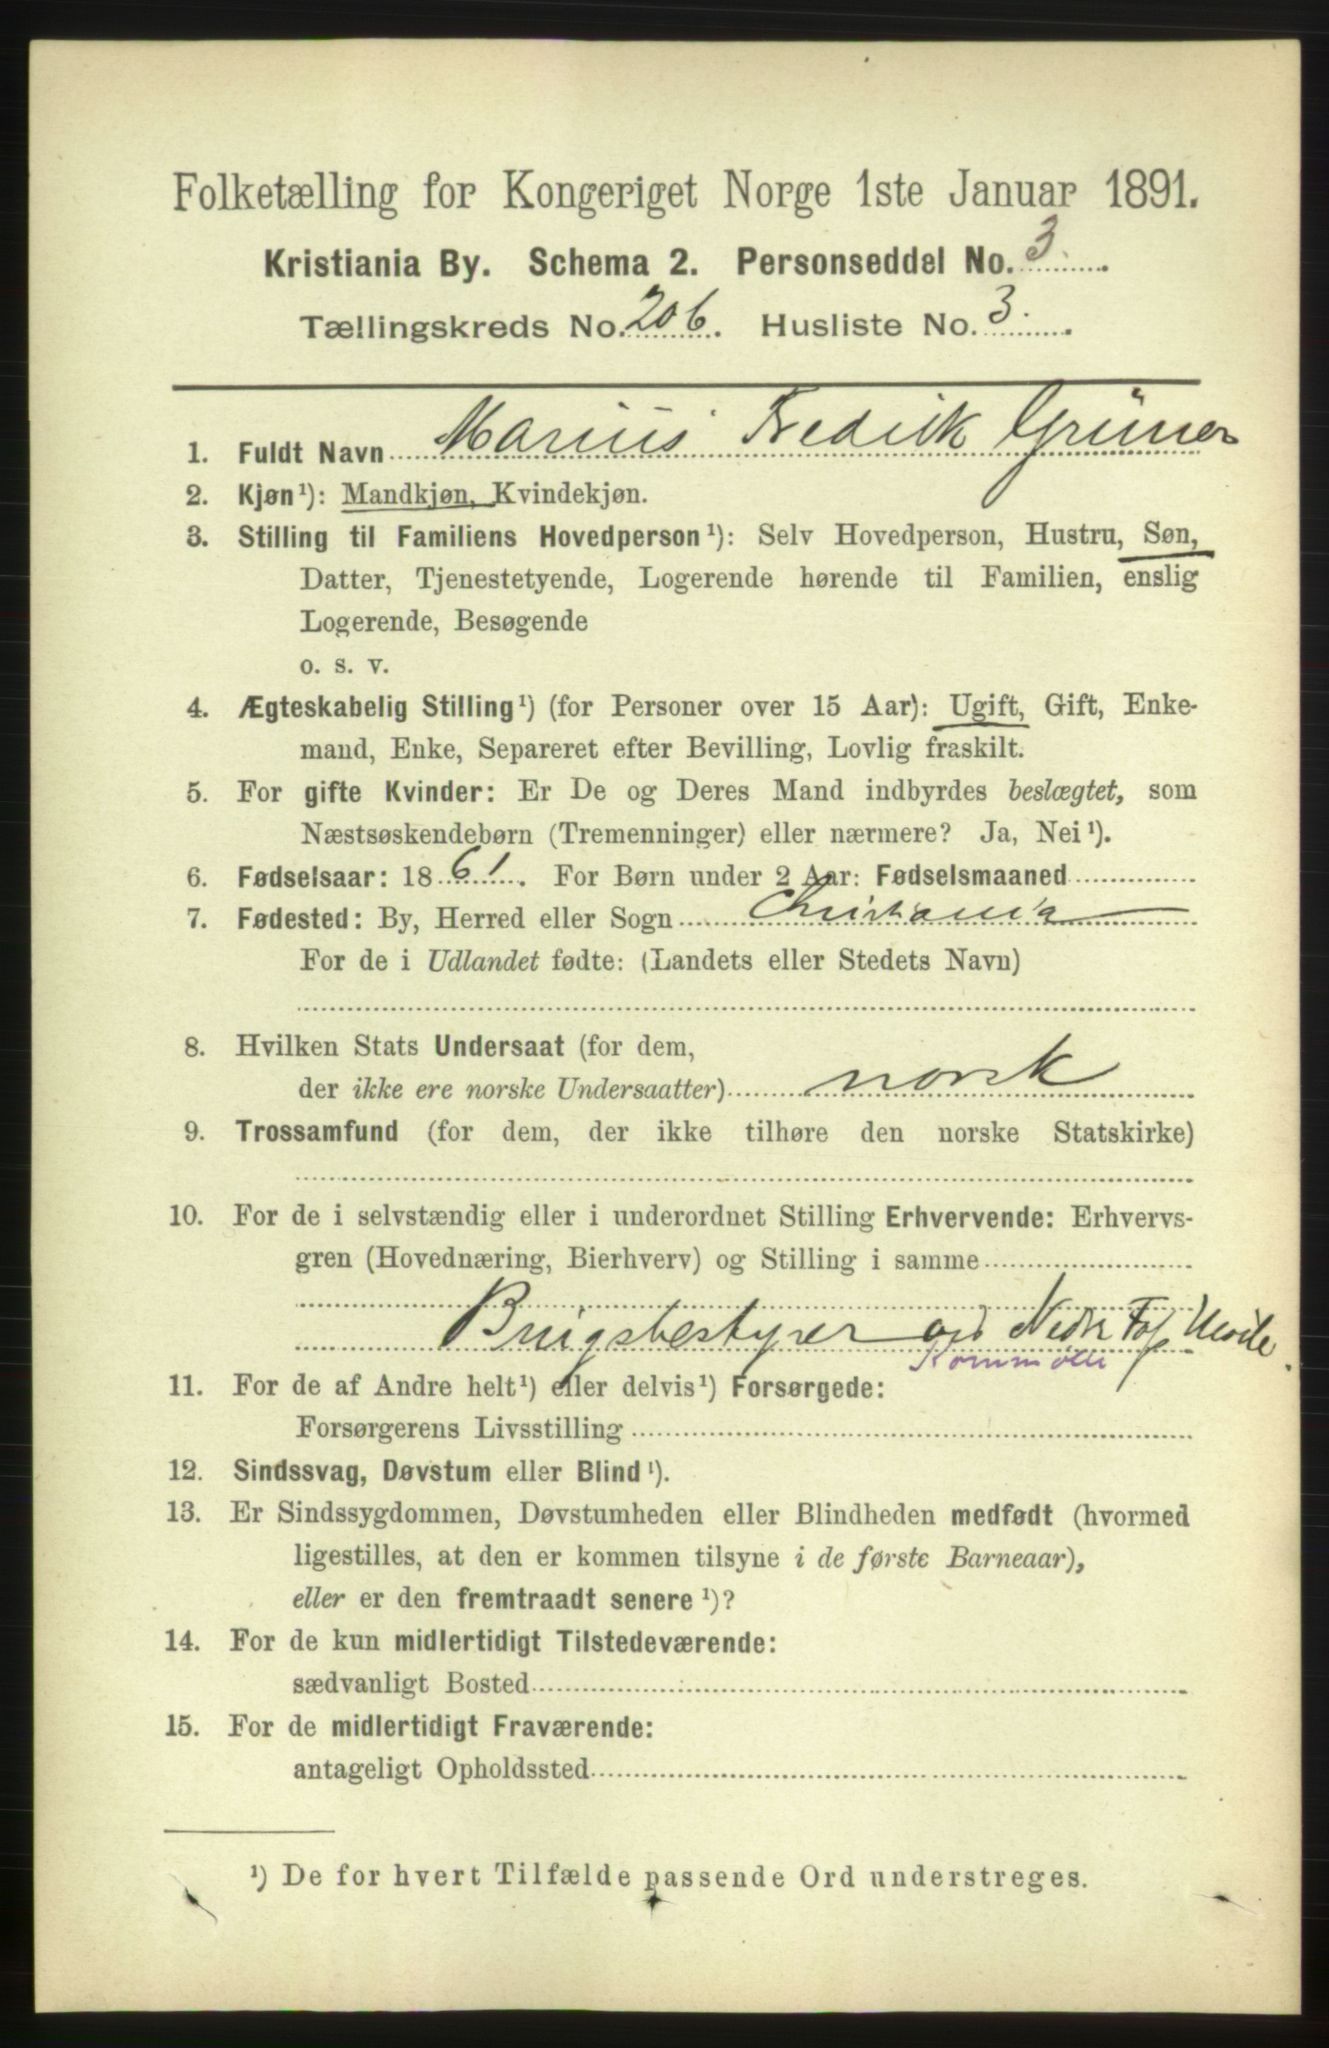 Folketælling for Kongeriget Norge 1ste Januar 1891.
Kristiania By. Schema 2. Personseddel No. 3.
Tællingskreds No. 206. Husliste No. 3.
1. Fuldt Navn Marius Fredrik Grüner
2. Kjøn¹): Mandkjøn, Kvindekjøn.
3. Stilling til Familiens Hovedperson¹): Selv Hovedperson, Hustru, Søn,
Datter, Tjenestetyende, Logerende hørende til Familien, enslig
Logerende, Besøgende
o. s. v.
4. Ægteskabelig Stilling¹) (for Personer over 15 Aar): Ugift, Gift, Enke-
mand, Enke, Separeret efter Bevilling, Lovlig fraskilt.
5. For gifte Kvinder: Er De og Deres Mand indbyrdes beslægtet, som
Næstsøskendebørn (Tremenninger) eller nærmere? Ja, Nei¹).
6. Fødselsaar: 1861. For Børn under 2 Aar: Fødselsmaaned
7. Fødested: By, Herred eller Sogn Christiania
For de i Udlandet fødte: (Landets eller Stedets Navn)
8. Hvilken Stats Undersaat (for dem,
der ikke ere norske Undersaatter) norsk
9. Trossamfund (for dem, der ikke tilhøre den norske Statskirke)
10. For de i selvstændig eller i underordnet Stilling Erhvervende: Erhvervs-
gren (Hovednæring, Bierhverv) og Stilling i samme
Brugsbestyrer Nedre
Kornmølle
11. For de af Andre helt¹) eller delvis¹) Forsørgede:
Forsørgerens Livsstilling
12. Sindssvag, Døvstum eller Blind¹).
13. Er Sindssygdommen, Døvstumheden eller Blindheden medfødt (hvormed
ligestilles, at den er kommen tilsyne i de første Barneaar),
eller er den fremtraadt senere¹)?
14. For de kun midlertidigt Tilstedeværende:
sædvanligt Bosted
15. For de midlertidigt Fraværende:
antageligt Opholdssted
¹) De for hvert Tilfælde passende Ord understreges.